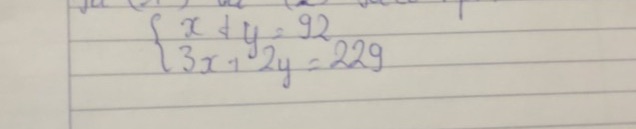 x + y = 92
3x + 2y = 229